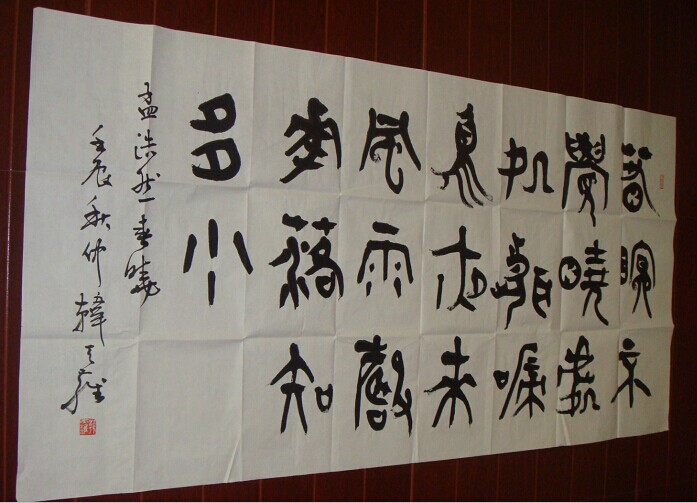 春眠不
覺曉處
処聞啼
鳥夜来
風雨聲
花落知
多少
孟浩然春曉
壬辰秋仲韓天雍